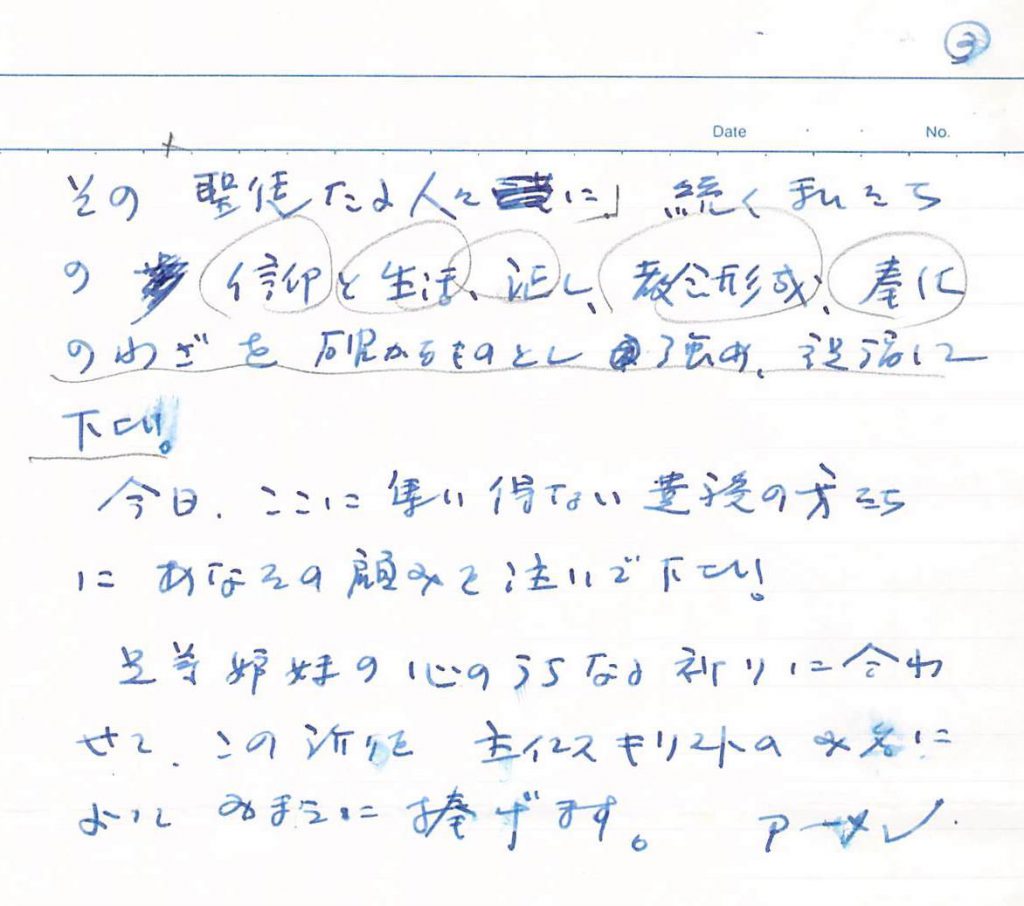 ③
Date . . No.
その 聖徒たる人々に」 続く 私たち
の 信仰と生活、証し、教会形成、奉仕
のわざを 確かなものとし 強め、祝福して
下さい。
今日、ここに 集い得ない 遺族の方たち
に あなたの顧みを 注いで下さい!
兄弟姉妹の心のうちなる祈りに合わ
せて、この祈りを 主イエスキリストのみ名に
よって みまえに 捧げます。 アーメン.